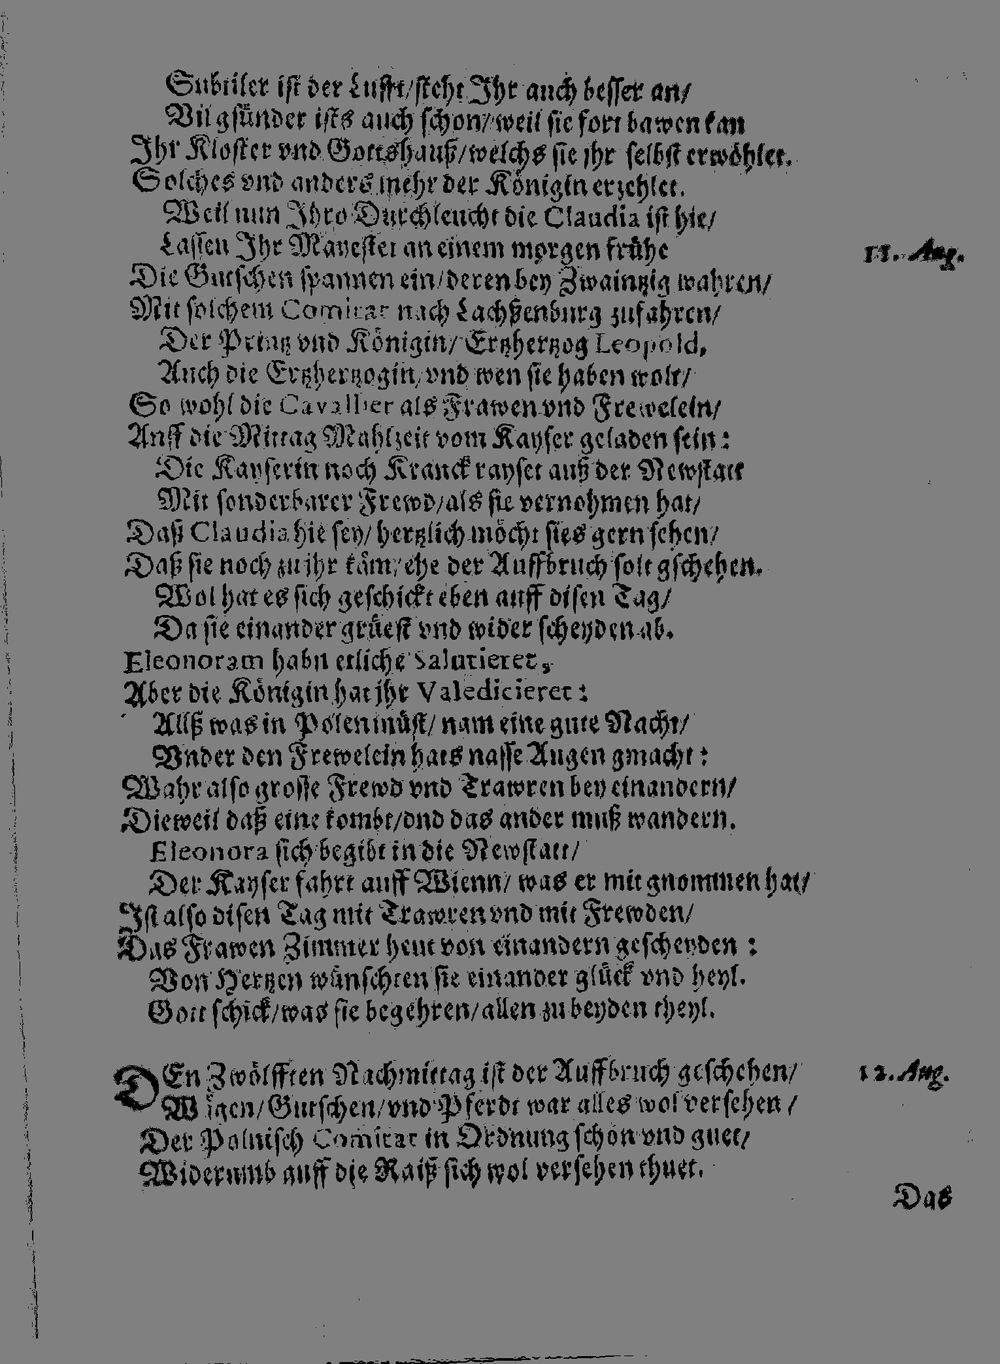 Subtiler ist der Lufft/steht Ihr auch besser an/
Vil gsünder ists auch schon/weil sie fort bawen kan
Ihr Kloster vnd Gottshauß/welchs sie jhr selbst erwöhlet.
Solches vnd anders mehr der Königin erzehlet.
Weil nun Ihro Durchleucht die Claudia ist hie/
Lassen Ihr Mayestet an einem morgen frühe
11. Aug.
Die Gutschen spannen ein/deren bey Zwaintzig wahren/
Mit solchem Comitat nach Lachßenburg zufahren/
Der Printz vnd Königin/Ertzhertzog Leopold,
Auch die Ertzhertzogin/vnd wen sie haben wolt/
So wohl die Cavallier als Frawen vnd Frewelein/
Auff die Mittag Mahlzeit vom Kayser geladen sein:
Die Kayserin noch Kranck rayset auß der Newstatt
Mit sonderbarer Frewd/als sie vernohmen hat/
Daß Claudia hie sey/hertzlich möcht sies gern sehen/
Daß sie noch zu jhr käm/ehe der Auffbruch solt gschehen.
Wol hat es sich geschickt eben auff disen Tag/
Da sie einander grüest vnd wider scheyden ab.
Eleonoram habn etliche Salutieret,
Aber die Königin hat jhr Valedicieret:
Allß was in Polen müst/nam eine gute Nacht/
Vnder den Frewelein hats nasse Augen gmacht:
Wahr also grosse Frewd vnd Trawren bey einandern/
Dieweil daß eine kombt/vnd das ander muß wandern.
Eleonora sich begibt in die Newstatt/
Der Kayser fahrt auff Wienn/was er mit gnommen hat/
Ist also disen Tag mit Trawren vnd mit Frewden/
Das Frawen Zimmer heut von einandern gescheyden:
Von Hertzen wünschten sie einander glück vnd heyl.
Gott schick/was sie begehren/allen zu beyden theyl.
DEn Zwölfften Nachmittag ist der Auffbruch geschehen/
12. Aug.
Wägen/Gutschen/vnd Pferdt war alles wol versehen/
Der Polnisch Comitat in Ordnung schon vnd guet/
Widerumb auff die Raiß sich wol versehen thuet.
Das